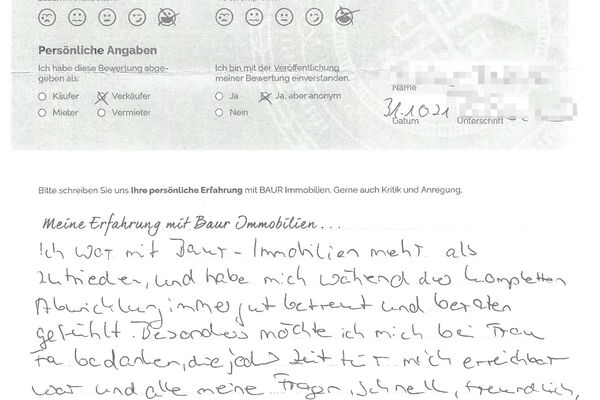 Persönliche Angaben
Ich habe diese Bewertung abge-
geben als:
Käufer Verkäufer
Mieter Vermieter
Ich bin mit der Veröffentlichung
meiner Bewertung einverstanden.
Ja Ja, aber anonym
Nein
Name
31.10.21
Datum Unterschrift
Bitte schreiben Sie uns Ihre persönliche Erfahrung mit BAUR Immobilien. Gerne auch Kritik und Anregung.
Meine Erfahrung mit Baur Immobilien...
Ich war mit Baur-Immobilien mehr als
zufrieden, und habe mich während der kompletten
Abwicklung immer gut betreut und beraten
gefühlt. Besonders möchte ich mich bei Frau
Fa bedanken, die jeder Zeit für mich erreichbar
war und alle meine Fragen, schnell, freundlich,